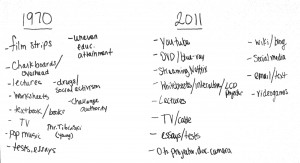 1970
- film strips
- uneven educ. attainment
- Chalkboards/
overhead
- lectures
- drugs/
social activism
- worksheets
- textbook/books
- challenge
authority
- TV
- pop music
- tests, essays
2011
- Youtube
- DVD/blu-ray
- Streaming/Netflix
- Whiteboards/interactive/LCD
projector
- Lectures
- TV/cable
- essays/tests
- O/h projector, doc camera
- wiki/blog
- Social media
- email/text
- Videogames